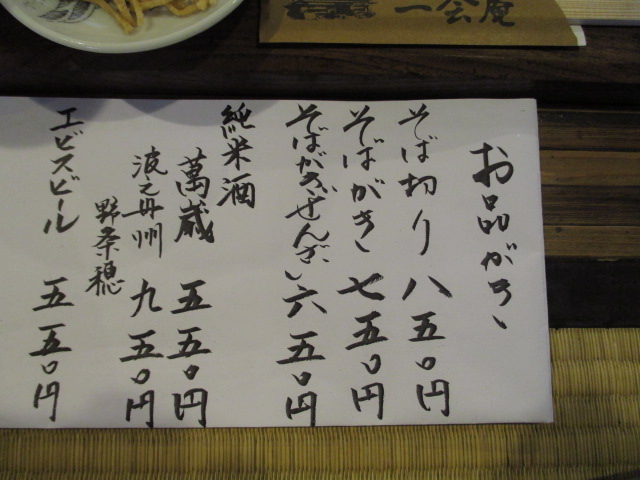 一会庵
お品がき
そば切り 八五〇円
そばがき 七五〇円
そばがきぜんざい 六五〇円
純米酒
萬歳 五五〇円
波之丹州 九五〇円
野条穂
エビスビール 五五〇円